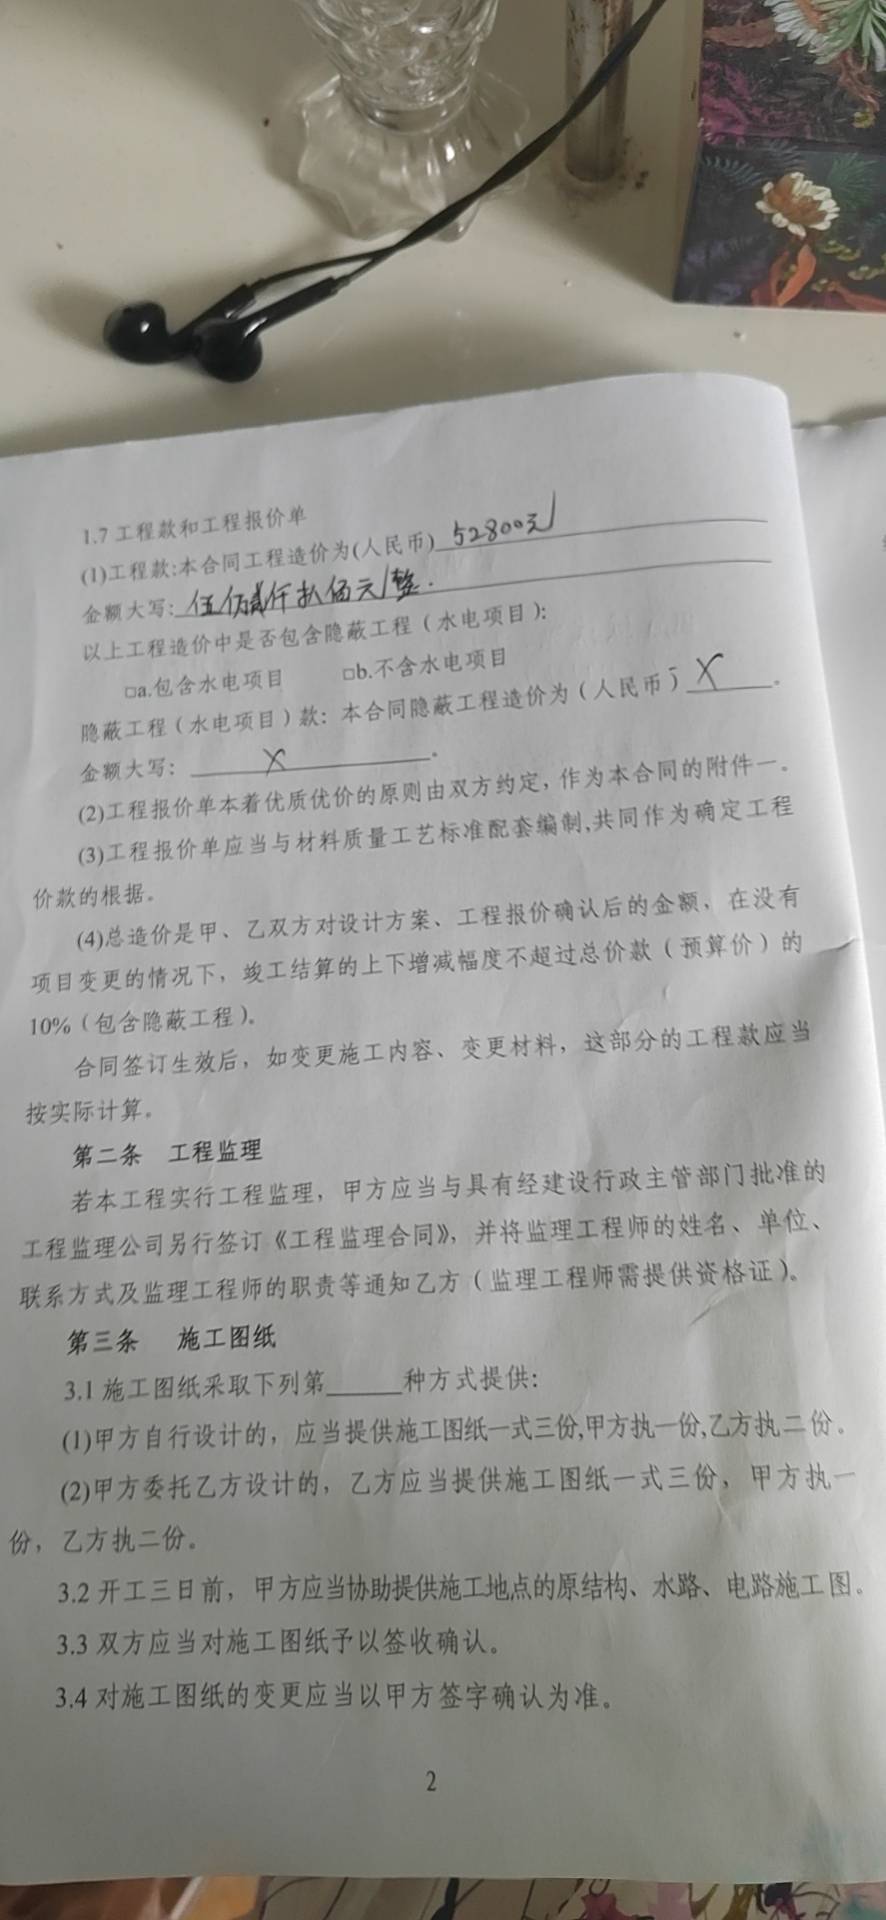 1.7 工程款和工程报价单
(1)工程款:本合同工程造价为(人民币) 52800元
金额大写: 伍仟贰仟扒佰元整.
以上工程造价中是否包含隐蔽工程（水电项目）:
□a.包含水电项目 □b.不含水电项目
隐蔽工程（水电项目）款：本合同隐蔽工程造价为（人民币） X 。
金额大写： X 。
(2)工程报价单本着优质优价的原则由双方约定，作为本合同的附件一。
(3)工程报价单应当与材料质量工艺标准配套编制,共同作为确定工程
价款的根据。
(4)总造价是甲、乙双方对设计方案、工程报价确认后的金额，在没有
项目变更的情况下，竣工结算的上下增减幅度不超过总价款（预算价）的
10%（包含隐蔽工程）。
合同签订生效后，如变更施工内容、变更材料，这部分的工程款应当
按实际计算。
第二条 工程监理
若本工程实行工程监理，甲方应当与具有经建设行政主管部门批准的
工程监理公司另行签订《工程监理合同》，并将监理工程师的姓名、单位、
联系方式及监理工程师的职责等通知乙方（监理工程师需提供资格证）。
第三条 施工图纸
3.1 施工图纸采取下列第______种方式提供:
(1)甲方自行设计的，应当提供施工图纸一式三份,甲方执一份,乙方执二份。
(2)甲方委托乙方设计的，乙方应当提供施工图纸一式三份，甲方执一
份，乙方执二份。
3.2 开工三日前，甲方应当协助提供施工地点的原结构、水路、电路施工图。
3.3 双方应当对施工图纸予以签收确认。
3.4 对施工图纸的变更应当以甲方签字确认为准。
2